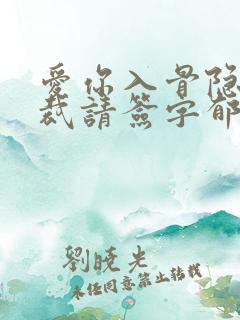 爱你入骨隐
裁請簽字郁
劉曉光
未经同意禁止转载